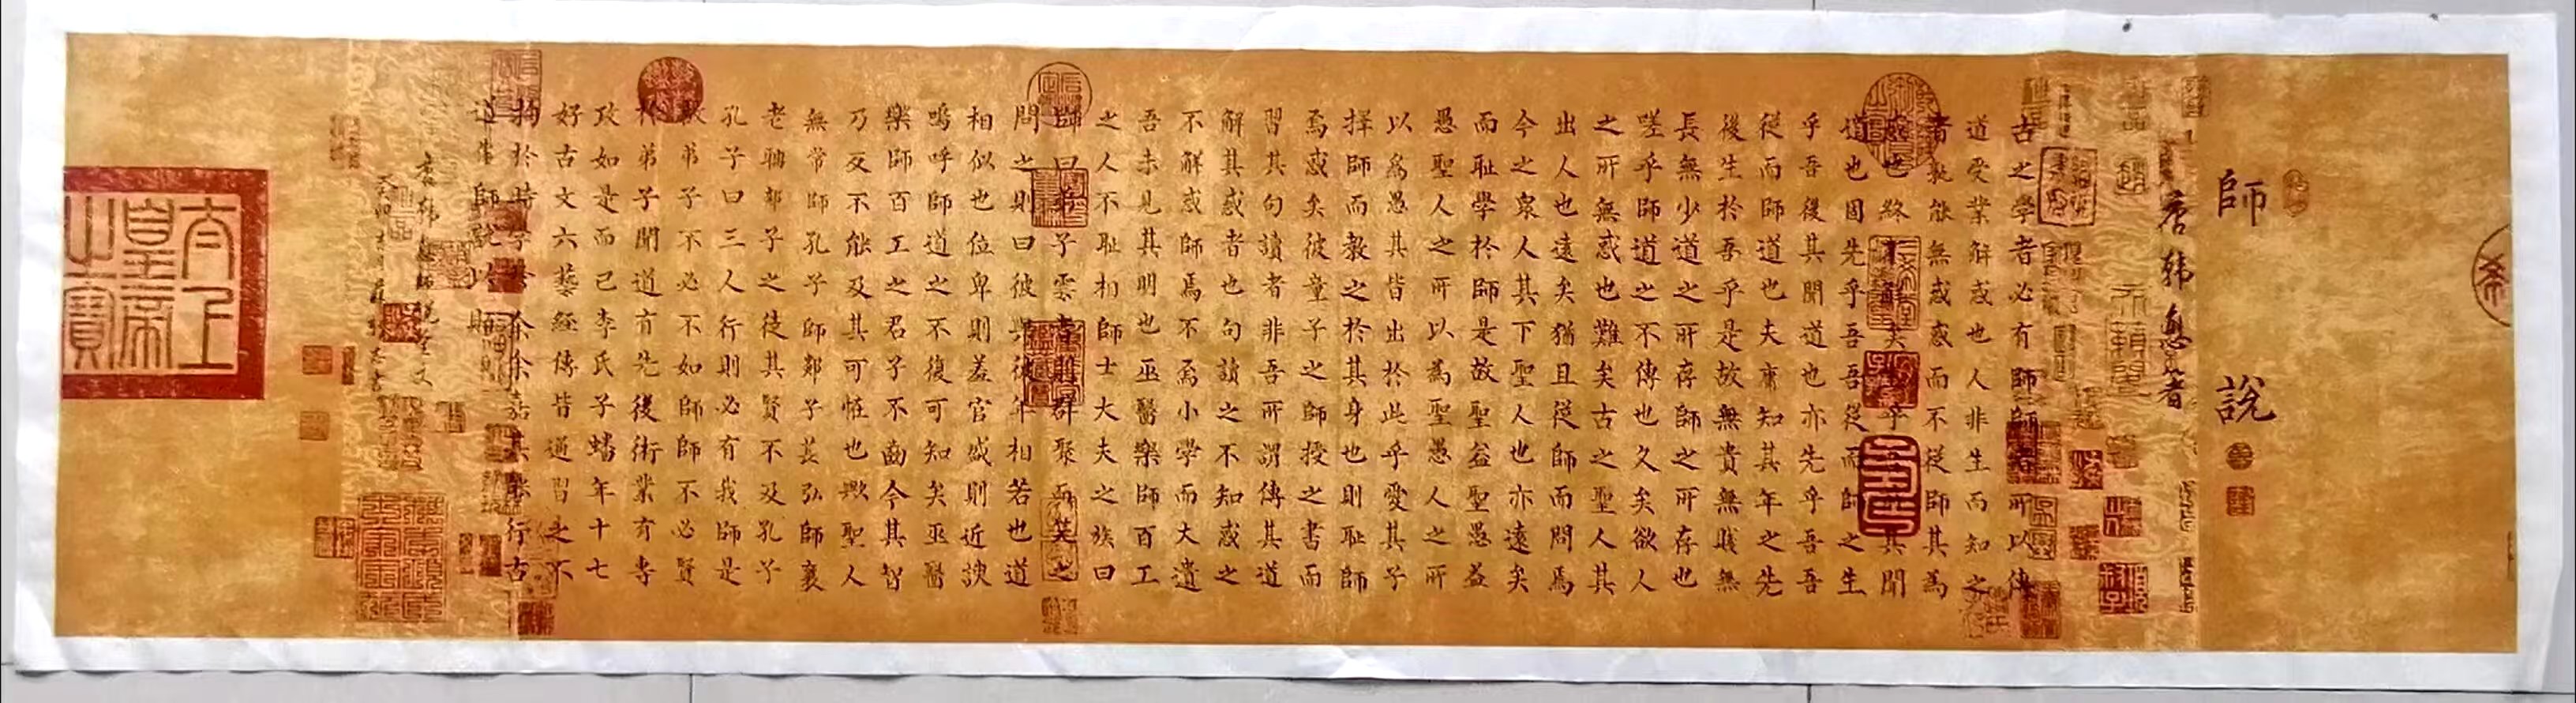 師說
唐韓愈
古之學者必有師師者所以傳
道受業解惑也人非生而知之
者孰能無惑惑而不從師其為
惑也終不解矣乎其聞
道也固先乎吾吾從而師之生
乎吾後其聞道也亦先乎吾吾
從而師道也夫庸知其年之先
後生於吾乎是故無貴無賤無
長無少道之所存師之所存也
嗟乎師道之不傳也久矣欲人
之所無惑也難矣古之聖人其
出人也遠矣猶且從師而問焉
今之衆人其下聖人也亦遠矣
而恥學於師是故聖益聖愚益
愚聖人之所以為聖愚人之所
以為愚其皆出於此乎愛其子
擇師而教之於其身也則恥師
焉惑矣彼童子之師授之書而
習其句讀者非吾所謂傳其道
解其惑者也句讀之不知惑之
不解惑師焉不焉小學而大遺
吾未見其明也巫醫樂師百工
之人不恥相師士大夫之族曰
師曰弟子雲者則群聚而笑之
問之則曰彼與彼年相若也道
相似也位卑則羞官盛則近諛
嗚呼師道之不復可知矣巫醫
樂師百工之君子不齒今其智
乃反不能及其可怪也歟聖人
無常師孔子師郯子萇弘師襄
老聃郯子之徒其賢不及孔子
孔子曰三人行則必有我師是
故弟子不必不如師師不必賢
於弟子聞道有先後術業有專
攻如是而已李氏子蟠年十七
好古文六藝經傳皆通習之不
拘於時學於余余嘉其能行古
道作師說以貽
唐韓愈師說全文
太上皇帝之寶